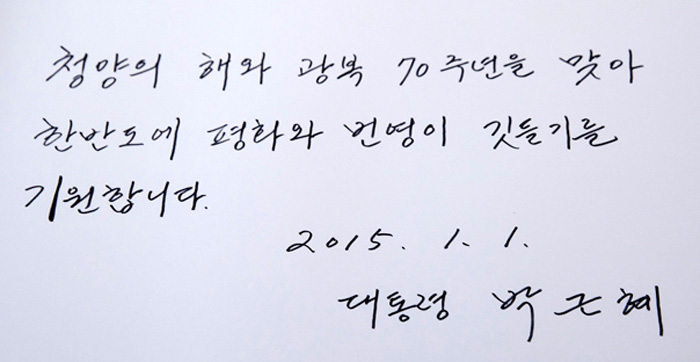 청양의 해와 광복 70주년을 맞아
한반도에 평화와 번영이 깃들기를
기원합니다.
2015. 1. 1.
대통령 박근혜